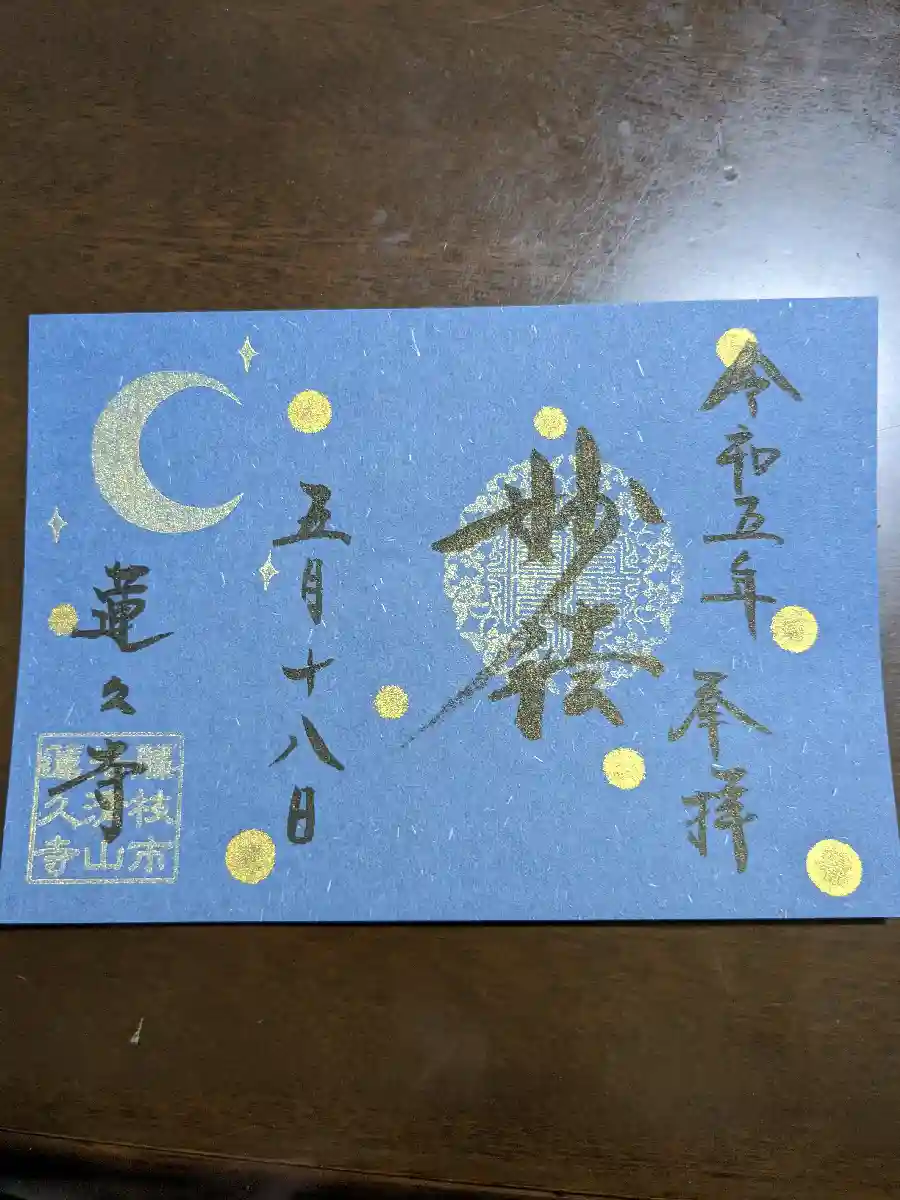 令和五年 奉拝
妙法
五月十八日
蓮久寺
藤枝市
山
蓮久寺